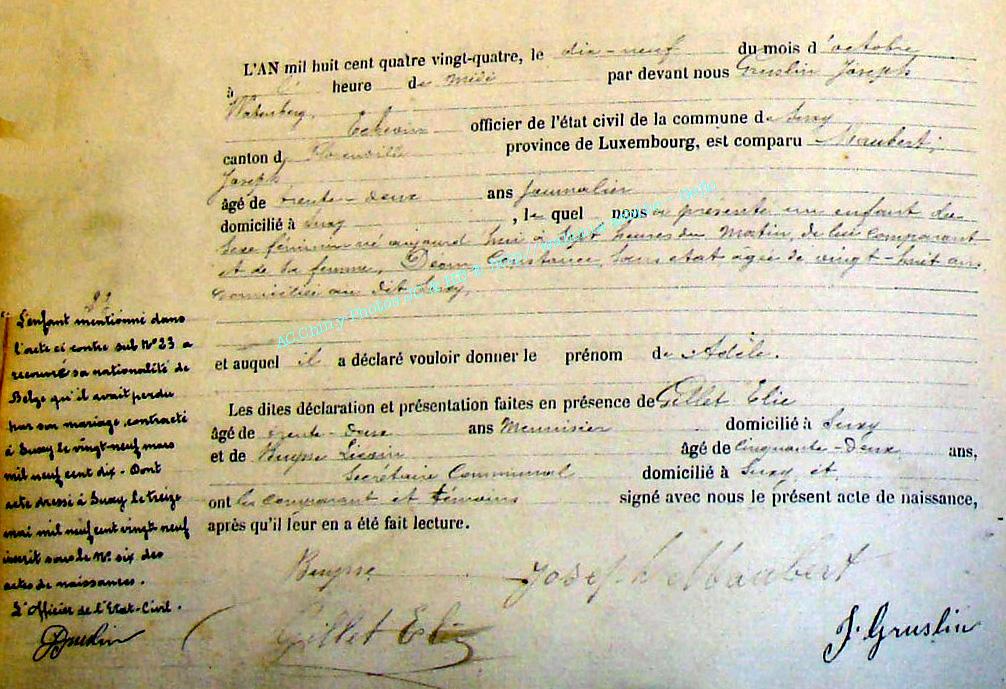 L'AN mil huit cent quatre vingt-quatre, le dix-neuf du mois d'octobre
à heure de midi par devant nous Gruslin Joseph
Echevin officier de l'état civil de la commune de Suxy
canton de Florenville province de Luxembourg, est comparu Maubert
Joseph
âgé de trente-deux ans Journalier
domicilié à Suxy, le quel nous a présenté un enfant du
sexe féminin né aujourd'hui à sept heures du matin, de lui comparant
et de sa femme, Deom Constance, sans état, âgée de vingt-huit ans
domiciliée au dit Suxy,
et auquel il a déclaré vouloir donner le prénom de Adèle.
Les dites déclaration et présentation faites en présence de Gillet Elie
âgé de trente-deux ans Meunisier domicilié à Suxy
et de âgé de cinquante-deux ans,
Secrétaire Communal domicilié à Suxy, et
ont les comparant et témoins signé avec nous le présent acte de naissance,
après qu'il leur en a été fait lecture.
Joseph Maubert
Gillet Elie
J. Gruslin
L'enfant mentionné dans
l'acte ci contre sub N° 23 a
recouvré sa nationalité de
Belge qu'il avait perdu
par son mariage contracté
à Suxy le vingt-neuf mars
mil neuf cent dix. Dont
acte dressé à Suxy le treize
mai mil neuf cent vingt neuf
inscrit sous le N° six des
actes de naissances.
L'Officier de l'Etat-Civil.
AC Chiny Photos